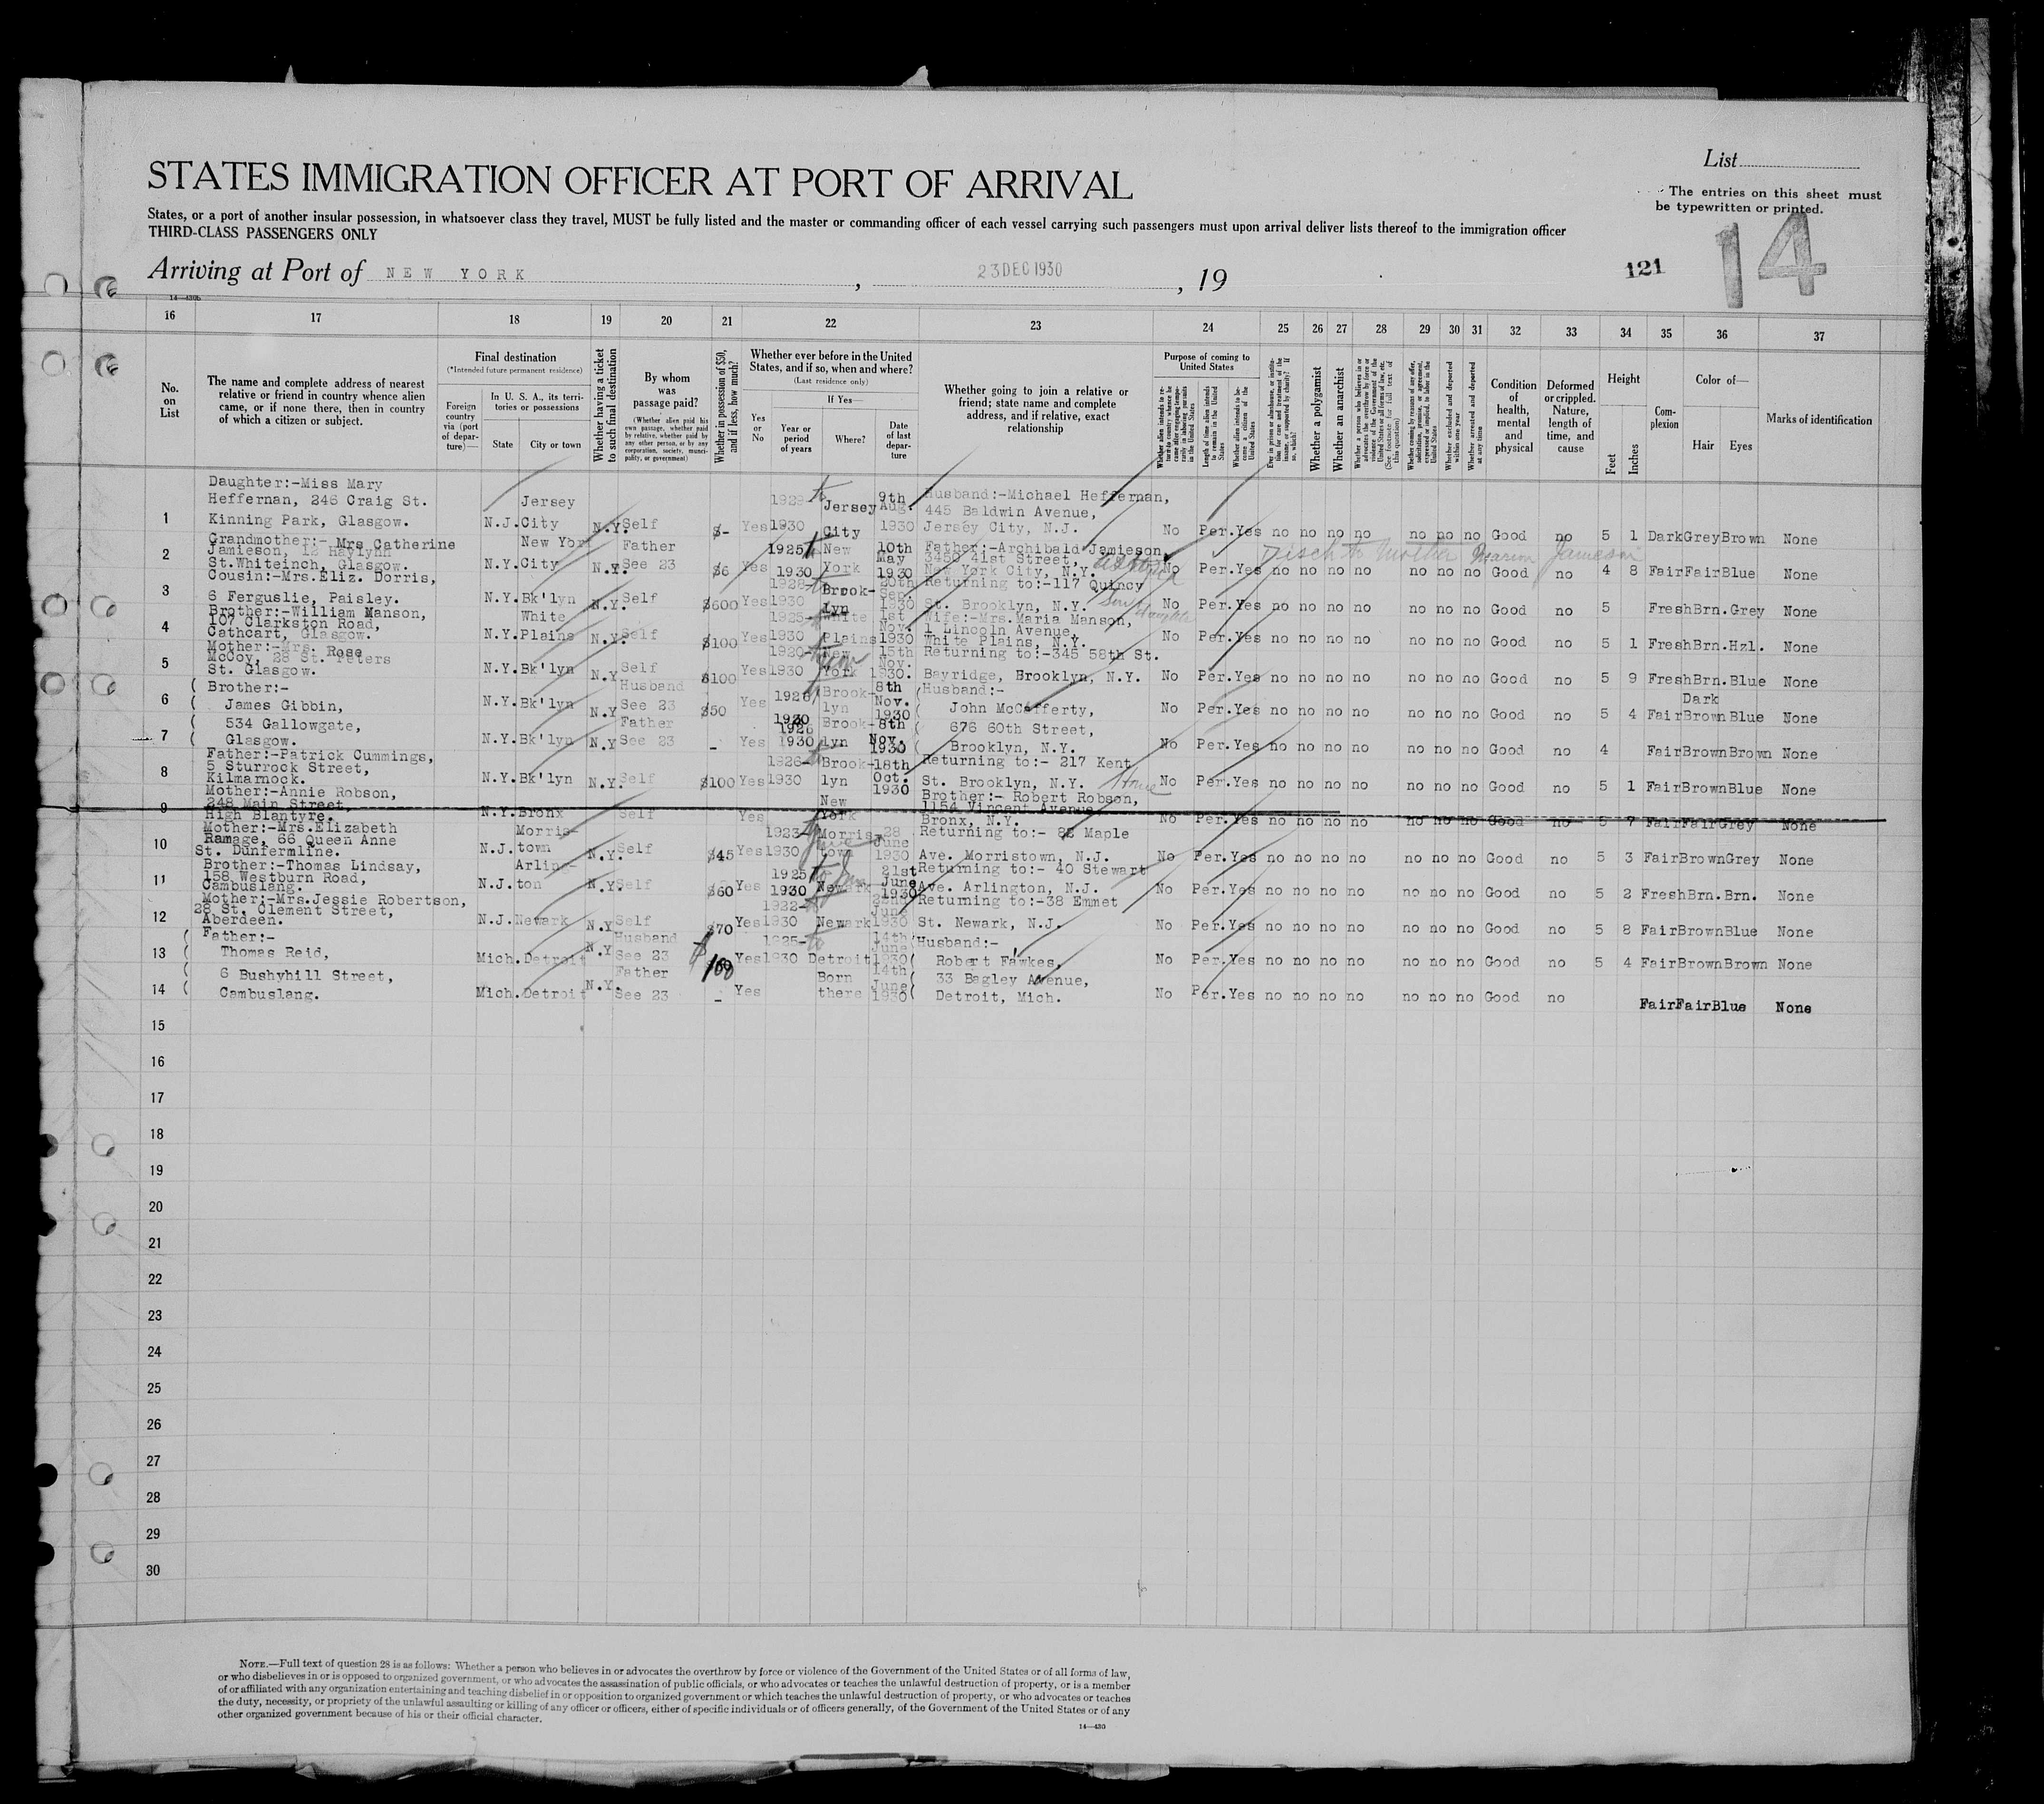 List
STATES IMMIGRATION OFFICER AT PORT OF ARRIVAL
The entries on this sheet must
be typewritten or printed.
States, or a port of another insular possession, in whatsoever class they travel, MUST be fully listed and the master or commanding officer of each vessel carrying such passengers must upon arrival deliver lists thereof to the immigration officer
THIRD-CLASS PASSENGERS ONLY
14
121
Arriving at Port of NEW YORK, 23 DEC 1930, 19
14—430b
16 17 18 19 20 21 22 23 24 25 26 27 28 29 30 31 32 33 34 35 36 37
No. on List
The name and complete address of nearest relative or friend in country whence alien came, or if none there, then in country of which a citizen or subject.
Final destination
(*Intended future permanent residence)
Foreign country via (port of departure)—
In U. S. A., its territories or possessions
State City or town
Whether having a ticket to such final destination
By whom was passage paid?
(Whether alien paid his own passage, whether paid by relative, whether paid by any other person, or by any corporation, society, municipality, or government)
Whether in possession of $50, and if less, how much?
Whether ever before in the United States, and if so, when and where?
(Last residence only)
If Yes—
Yes or No
Year or period of years
Where?
Date of last departure
Whether going to join a relative or friend; state name and complete address, and if relative, exact relationship
Purpose of coming to United States
Length of time alien intends to remain in the United States
Whether alien intends to become a citizen of the United States
Whether a polygamist
Whether an anarchist
Whether excluded and deported within one year
Whether arrested and deported at any time
Condition of health, mental and physical
Deformed or crippled. Nature, length of time, and cause
Height
Feet Inches
Complexion
Color of—
Hair Eyes
Marks of identification
1 Daughter:-Miss Mary Heffernan, 246 Craig St. Kinning Park, Glasgow. N.J. Jersey City N.Y. Self $- Yes 1930 Jersey City 9th Aug. 1930 Husband:-Michael Heffernan, 445 Baldwin Avenue, Jersey City, N.J. No Per. Yes no no no no no no no Good no 5 1 Dark Grey Brown None
2 Grandmother:- Mrs Catherine Jamieson, 12 Haylynn St. Whiteinch, Glasgow. N.Y. New York City N.Y. Father See 23 $6 Yes 1925 to 1930 New York 10th May 1930 Father:-Archibald Jamieson, 3450 41st Street, New York City, N.Y. No Per. Yes no no no no no no no Good no 4 8 Fair Fair Blue None
Disch to Mother Marion Jamieson
3 Cousin:-Mrs.Eliz. Dorris, 6 Ferguslie, Paisley. N.Y. Bk'lyn N.Y. Self $600 Yes 1928- 1930 Brook-lyn 20th Sep. 1930 Returning to:-117 Quincy St. Brooklyn, N.Y. No Per. Yes no no no no no no no Good no 5 Fresh Brn. Grey None
4 Brother:-William Manson, 107 Clarkston Road, Cathcart, Glasgow. N.Y. White Plains N.Y. Self $100 Yes 1925- 1930 White Plains 1st Nov. 1930 Wife:-Mrs.Maria Manson, 1 Lincoln Avenue, White Plains, N.Y. No Per. Yes no no no no no no no Good no 5 1 Fresh Brn. Hzl. None
5 Mother:-Mrs. Rose McCoy, 28 St. Peters St. Glasgow. N.Y. Bk'lyn N.Y. Self $100 Yes 1920- 1930 New York 15th Nov. 1930. Returning to:-345 58th St. Bayridge, Brooklyn, N.Y. No Per. Yes no no no no no no no Good no 5 9 Fresh Brn. Blue None
6 ( Brother:- James Gibbin, N.Y. Bk'lyn N.Y Husband See 23 $50 Yes 1926 1930 Brook-lyn 8th Nov. 1930 (Husband:- John McCafferty, No Per. Yes no no no no no no no Good no 5 4 Fair Dark Brown Blue None
7 ( 534 Gallowgate, Glasgow. N.Y. Bk'lyn N.Y Father See 23 - Yes 1926 1930 Brook-lyn 8th Nov. 1930 ( 676 60th Street, Brooklyn, N.Y. No Per. Yes no no no no no no no Good no 4 Fair Brown Brown None
8 Father:-Patrick Cummings, 5 Sturrock Street, Kilmarnock. N.Y. Bk'lyn N.Y. Self $100 Yes 1926- 1930 Brook-lyn 18th Oct. 1930 Returning to:- 217 Kent St. Brooklyn, N.Y. No Per. Yes no no no no no no no Good no 5 1 Fair Brown Blue None
9 Mother:-Annie Robson, 248 Main Street, High Blantyre. N.Y. Bronx Self Yes New York Brother:- Robert Robson, 1154 Vincent Avenue, Bronx, N.Y. No Per. Yes no no no no no no no Good no 5 7 Fair Fair Grey None
10 Mother:-Mrs.Elizabeth Ramage, 66 Queen Anne St. Dunfermline. N.J. Morris-town N.Y. Self $45 Yes 1923- 1930 Morris-town 28 June 1930 Returning to:- 82 Maple Ave. Morristown, N.J. No Per. Yes no no no no no no no Good no 5 3 Fair Brown Grey None
11 Brother:-Thomas Lindsay, 158 Westburn Road, Cambuslang. N.J. Arling-ton N.Y. Self $60 Yes 1925 1930 Newark 21st June 1930 Returning to:- 40 Stewart Ave. Arlington, N.J. No Per. Yes no no no no no no no Good no 5 2 Fresh Brn. Brn. None
12 Mother:-Mrs.Jessie Robertson, 28 St. Clement Street, Aberdeen. N.J. Newark N.Y Self $70 Yes 1922- 1930 Newark June 1930 Returning to:-38 Emmet St. Newark, N.J. No Per. Yes no no no no no no no Good no 5 8 Fair Brown Blue None
13 ( Father:- Thomas Reid, Mich. Detroit N.Y Husband See 23 $100 Yes 1925- to 1930 Detroit 14th June 1930 (Husband:- Robert Fawkes, No Per. Yes no no no no no no no Good no 5 4 Fair Brown Brown None
14 ( 6 Bushyhill Street, Cambuslang. Mich. Detroit N.Y. Father See 23 - Yes Born there 14th June 1930 ( 33 Bagley Avenue, Detroit, Mich. No Per. Yes no no no no no no no Good no Fair Fair Blue None
15
16
17
18
19
20
21
22
23
24
25
26
27
28
29
30
NOTE.—Full text of question 28 is as follows: Whether a person who believes in or advocates the overthrow by force or violence of the Government of the United States or of all forms of law,
or who disbelieves in or is opposed to organized government, or who advocates the assassination of public officials, or who advocates or teaches the unlawful destruction of property, or is a member
of or affiliated with any organization entertaining and teaching disbelief in or opposition to organized government or which teaches the unlawful destruction of property, or who advocates or teaches
the duty, necessity, or propriety of the unlawful assaulting or killing of any officer or officers, either of specific individuals or of officers generally, of the Government of the United States or of any
other organized government because of his or their official character.
14—430